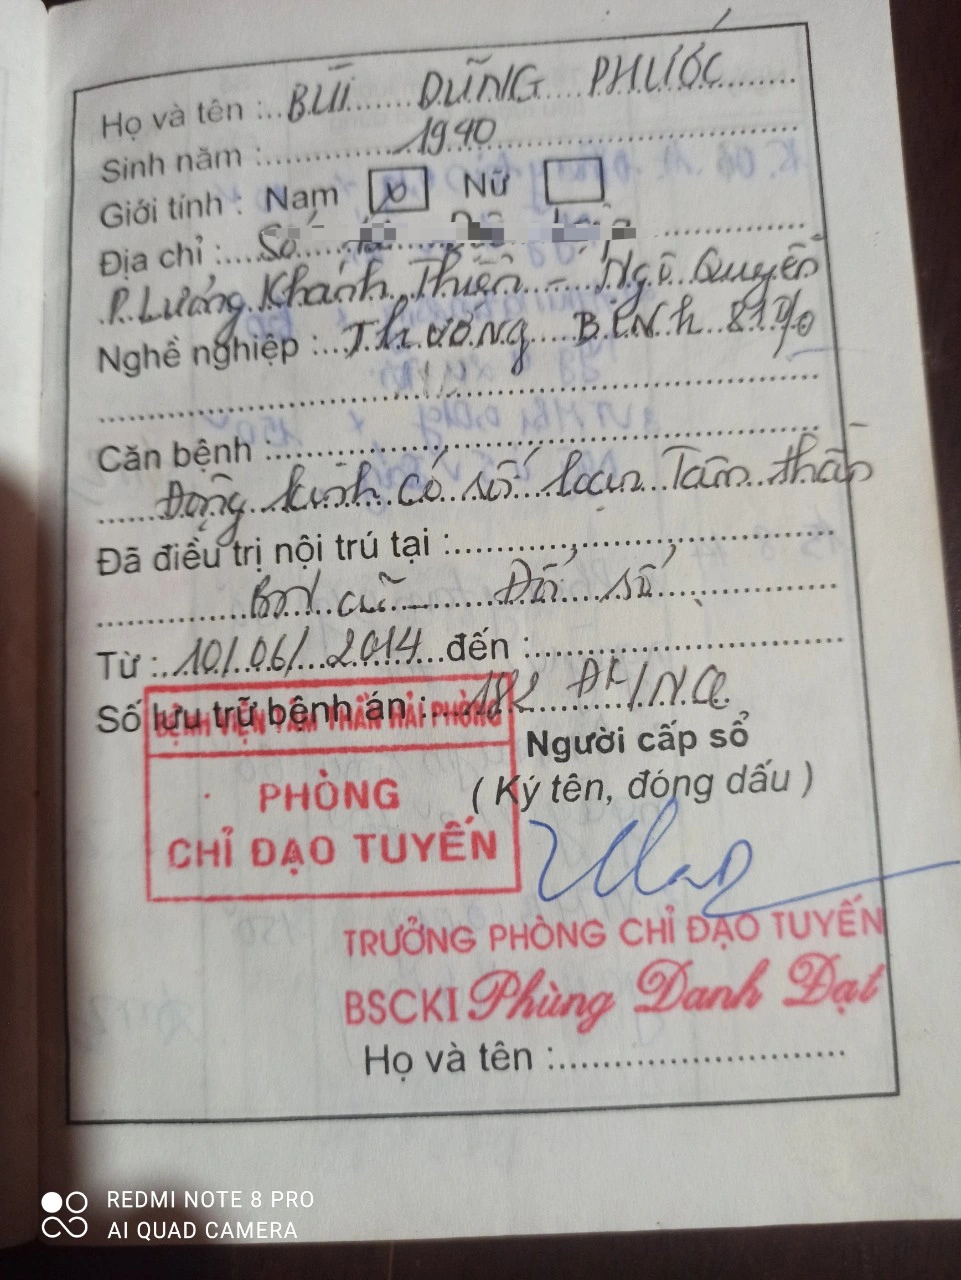 Họ và tên : BÙI DŨNG PHƯỚC
Sinh năm : 1940
Giới tính : Nam Nữ
Địa chỉ : Số
P. Lương Khánh Thiện - Ngô Quyền
Nghề nghiệp : Thương Binh 81%
Căn bệnh :
Động kinh có rối loạn Tâm thần
Đã điều trị nội trú tại :
BN cũ - Đổi sổ
Từ : 10/06/2014 đến :
Số lưu trữ bệnh án : 182 ĐK/NQ
BỆNH VIỆN TÂM THẦN HẢI PHÒNG
PHÒNG
CHỈ ĐẠO TUYẾN
Người cấp sổ
( Ký tên, đóng dấu )
TRƯỞNG PHÒNG CHỈ ĐẠO TUYẾN
BSCKI Phùng Danh Đạt
Họ và tên :
REDMI NOTE 8 PRO
AI QUAD CAMERA